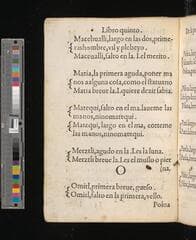 Libro quinto.
Macehualli, largo en las dos, prime-
ras hombre, vil y plebeyo.
Macehualli, salto en la. I. el merito.
Matia, la primera aguda, poner ma
nos a alguna cosa, como el statuano
Matia breue la. I. quiere dezir
Matequi, salto en el ma. laueme las
manos, ninomatequi.
Matequi, largo en el ma, corteme
las manos, ninomatequi.
Meztli, agudo en la. I. es la luna.
Meztli breue la. I. es el muslo o pier
(na,
O
Omitl, primera breue, gueso.
Omitl, salto en la primera, vello.